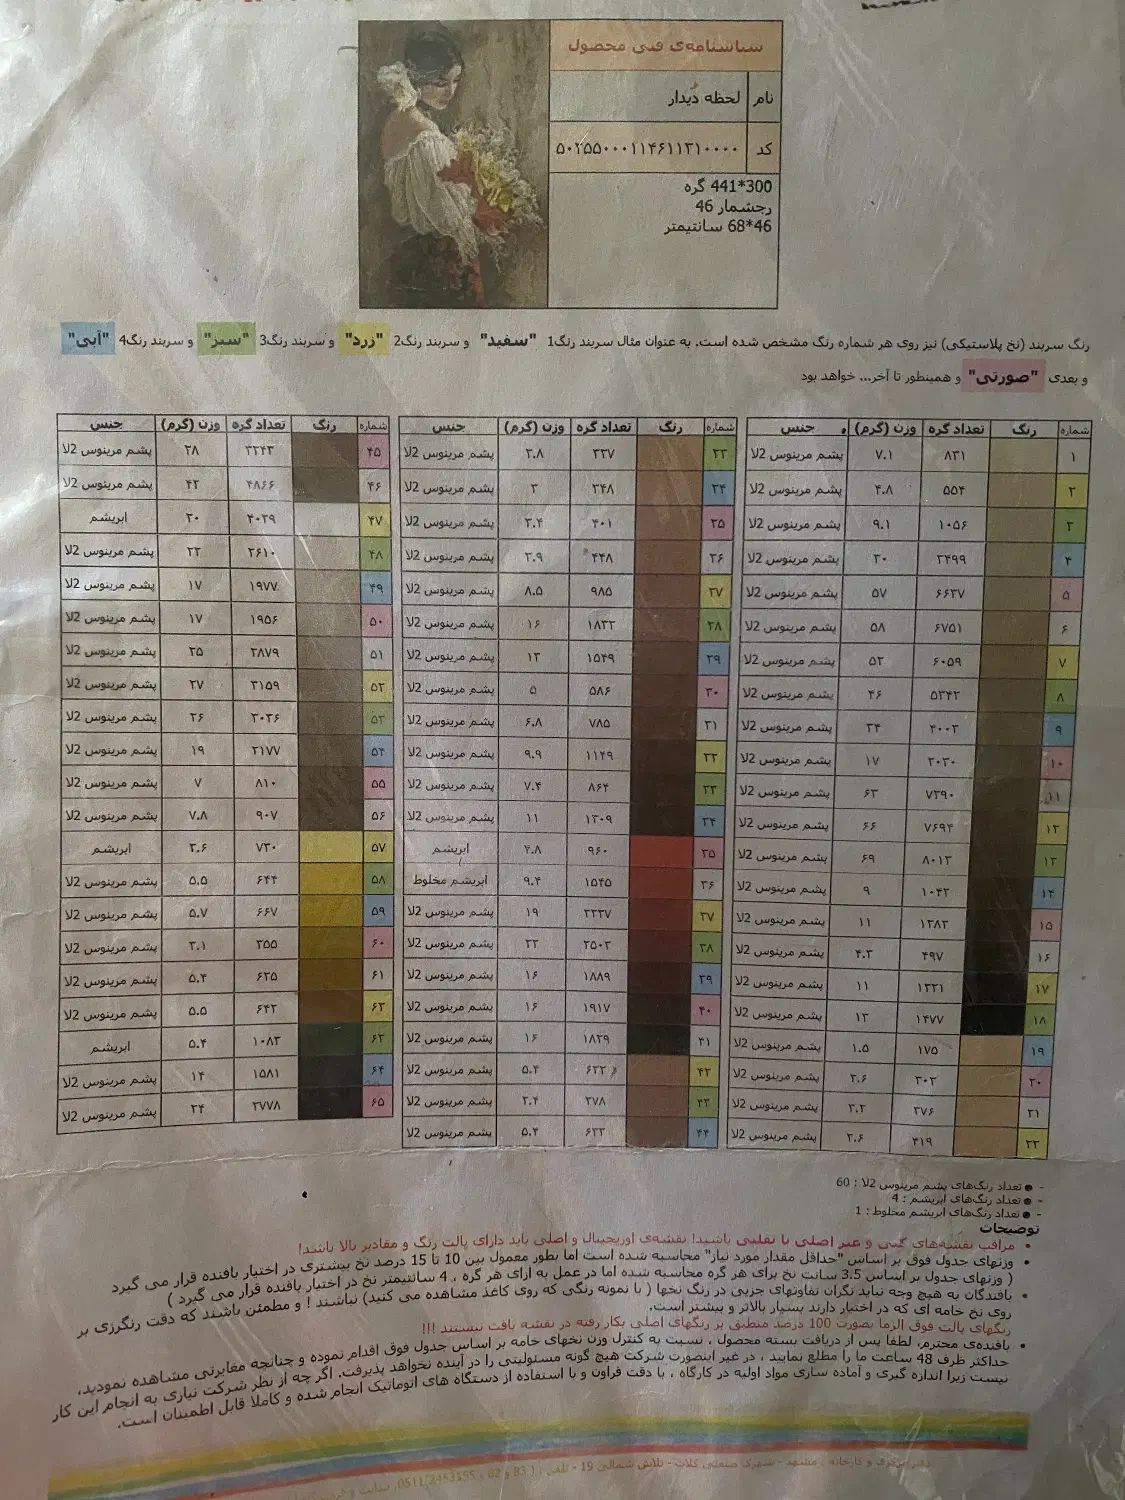 شناسنامه‌ی فنی محصول
نام لحظه دیدار
کد ۵۰۲۵۵۰۰۰۱۱۴۶۱۱۳۱۰۰۰۰
300*441 گره
رجشمار 46
46*68 سانتیمتر
رنگ سربند (نخ پلاستیکی) نیز روی هر شماره رنگ مشخص شده است. به عنوان مثال سربند رنگ1 "سفید" و سربند رنگ2 "زرد" و سربند رنگ3 "سبز" و سربند رنگ4 "آبی"
و بعدی "صورتی" و همینطور تا آخر... خواهد بود
شماره رنگ تعداد گره وزن (گرم) جنس
۱ ۸۳۱ ۷.۱ پشم مرینوس 2لا
۲ ۵۵۴ ۴.۸ پشم مرینوس 2لا
۳ ۱۰۵۶ ۹.۱ پشم مرینوس 2لا
۴ ۳۴۹۹ ۳۰ پشم مرینوس 2لا
۵ ۶۶۳۷ ۵۷ پشم مرینوس 2لا
۶ ۶۷۵۱ ۵۸ پشم مرینوس 2لا
۷ ۶۰۵۹ ۵۲ پشم مرینوس 2لا
۸ ۵۳۴۲ ۴۶ پشم مرینوس 2لا
۹ ۴۰۰۲ ۳۴ پشم مرینوس 2لا
۱۰ ۲۰۳۰ ۱۷ پشم مرینوس 2لا
۱۱ ۷۳۹۰ ۶۳ پشم مرینوس 2لا
۱۲ ۷۶۹۴ ۶۶ پشم مرینوس 2لا
۱۳ ۸۰۱۳ ۶۹ پشم مرینوس 2لا
۱۴ ۱۰۴۲ ۹ پشم مرینوس 2لا
۱۵ ۱۲۸۲ ۱۱ پشم مرینوس 2لا
۱۶ ۴۹۷ ۴.۳ پشم مرینوس 2لا
۱۷ ۱۳۳۱ ۱۱ پشم مرینوس 2لا
۱۸ ۱۴۷۷ ۱۳ پشم مرینوس 2لا
۱۹ ۱۷۵ ۱.۵ پشم مرینوس 2لا
۲۰ ۳۰۲ ۲.۶ پشم مرینوس 2لا
۲۱ ۳۷۶ ۳.۲ پشم مرینوس 2لا
۲۲ ۴۱۹ ۳.۶ پشم مرینوس 2لا
شماره رنگ تعداد گره وزن (گرم) جنس
۲۳ ۳۲۷ ۲.۸ پشم مرینوس 2لا
۲۴ ۳۴۸ ۳ پشم مرینوس 2لا
۲۵ ۴۰۱ ۳.۴ پشم مرینوس 2لا
۲۶ ۴۴۸ ۳.۹ پشم مرینوس 2لا
۲۷ ۹۸۵ ۸.۵ پشم مرینوس 2لا
۲۸ ۱۸۳۲ ۱۶ پشم مرینوس 2لا
۲۹ ۱۵۴۹ ۱۳ پشم مرینوس 2لا
۳۰ ۵۸۶ ۵ پشم مرینوس 2لا
۳۱ ۷۸۵ ۶.۸ پشم مرینوس 2لا
۳۲ ۱۱۴۹ ۹.۹ پشم مرینوس 2لا
۳۳ ۸۶۴ ۷.۴ پشم مرینوس 2لا
۳۴ ۱۳۰۹ ۱۱ پشم مرینوس 2لا
۳۵ ۹۶۰ ۴.۸ ابریشم
۳۶ ۱۵۴۵ ۹.۴ ابریشم مخلوط
۳۷ ۲۲۳۷ ۱۹ پشم مرینوس 2لا
۳۸ ۲۵۰۲ ۲۲ پشم مرینوس 2لا
۳۹ ۱۸۸۹ ۱۶ پشم مرینوس 2لا
۴۰ ۱۹۱۷ ۱۶ پشم مرینوس 2لا
۴۱ ۱۸۲۹ ۱۶ پشم مرینوس 2لا
۴۲ ۶۳۲ ۵.۴ پشم مرینوس 2لا
۴۳ ۲۷۸ ۲.۴ پشم مرینوس 2لا
۴۴ ۶۳۳ ۵.۴ پشم مرینوس 2لا
شماره رنگ تعداد گره وزن (گرم) جنس
۴۵ ۳۲۴۳ ۲۸ پشم مرینوس 2لا
۴۶ ۴۸۶۶ ۴۲ پشم مرینوس 2لا
۴۷ ۴۰۳۹ ۲۰ ابریشم
۴۸ ۲۶۱۰ ۲۲ پشم مرینوس 2لا
۴۹ ۱۹۷۷ ۱۷ پشم مرینوس 2لا
۵۰ ۱۹۵۶ ۱۷ پشم مرینوس 2لا
۵۱ ۲۸۷۹ ۲۵ پشم مرینوس 2لا
۵۲ ۳۱۵۹ ۲۷ پشم مرینوس 2لا
۵۳ ۳۰۳۶ ۲۶ پشم مرینوس 2لا
۵۴ ۲۱۷۷ ۱۹ پشم مرینوس 2لا
۵۵ ۸۱۰ ۷ پشم مرینوس 2لا
۵۶ ۹۰۷ ۷.۸ پشم مرینوس 2لا
۵۷ ۷۳۰ ۳.۶ ابریشم
۵۸ ۶۴۴ ۵.۵ پشم مرینوس 2لا
۵۹ ۶۶۷ ۵.۷ پشم مرینوس 2لا
۶۰ ۳۵۵ ۳.۱ پشم مرینوس 2لا
۶۱ ۶۳۵ ۵.۴ پشم مرینوس 2لا
۶۲ ۶۴۲ ۵.۵ پشم مرینوس 2لا
۶۳ ۱۰۸۲ ۵.۴ ابریشم
۶۴ ۱۵۸۱ ۱۴ پشم مرینوس 2لا
۶۵ ۲۷۷۸ ۲۴ پشم مرینوس 2لا
- ● تعداد رنگ‌های پشم مرینوس 2لا : 60
- ● تعداد رنگ‌های ابریشم : 4
- ● تعداد رنگ‌های ابریشم مخلوط : 1
توضیحات
• مراقب نقشه‌های کپی و غیر اصلی یا تقلبی باشید! نقشه‌ی اوریجینال و اصلی باید دارای پالت رنگ و مقادیر بالا باشند!
• وزنهای جدول فوق بر اساس "حداقل مقدار مورد نیاز" محاسبه شده است اما بطور معمول بین 10 تا 15 درصد نخ بیشتری در اختیار بافنده قرار می گیرد
( وزنهای جدول بر اساس 3.5 سانت نخ برای هر گره محاسبه شده اما در عمل به ازای هر گره ، 4 سانتیمتر نخ در اختیار بافنده قرار می گیرد )
• بافندگان به هیچ وجه نباید نگران تفاوتهای جزیی در رنگ نخها ( با نمونه رنگی که روی کاغذ مشاهده می کنید) نباشند ! و مطمئن باشند که دقت رنگرزی بر
روی نخ خامه ای که در اختیار دارند بسیار بالاتر و بیشتر است.
رنگهای پالت فوق الزما بصورت 100 درصد منطبق بر رنگهای اصلی بکار رفته در نقشه بافت نیستند !!!
• بافنده‌ی محترم، لطفا پس از دریافت بسته محصول ، نسبت به کنترل وزن نخهای خامه بر اساس جدول فوق اقدام نموده و چنانچه مغایرتی مشاهده نمودید،
حداکثر ظرف 48 ساعت ما را مطلع نمایید ، در غیر اینصورت شرکت هیچ گونه مسئولیتی را در آینده نخواهد پذیرفت. اگر چه از نظر شرکت نیازی به انجام این کار
نیست زیرا اندازه گیری و آماده سازی مواد اولیه در کارگاه ، با دقت فراون و با استفاده از دستگاه های اتوماتیک انجام شده و کاملا قابل اطمینان است.
دفتر مرکزی و کارخانه : مشهد - شهرک صنعتی کلات - تلاش شمالی 19 - تلفن :